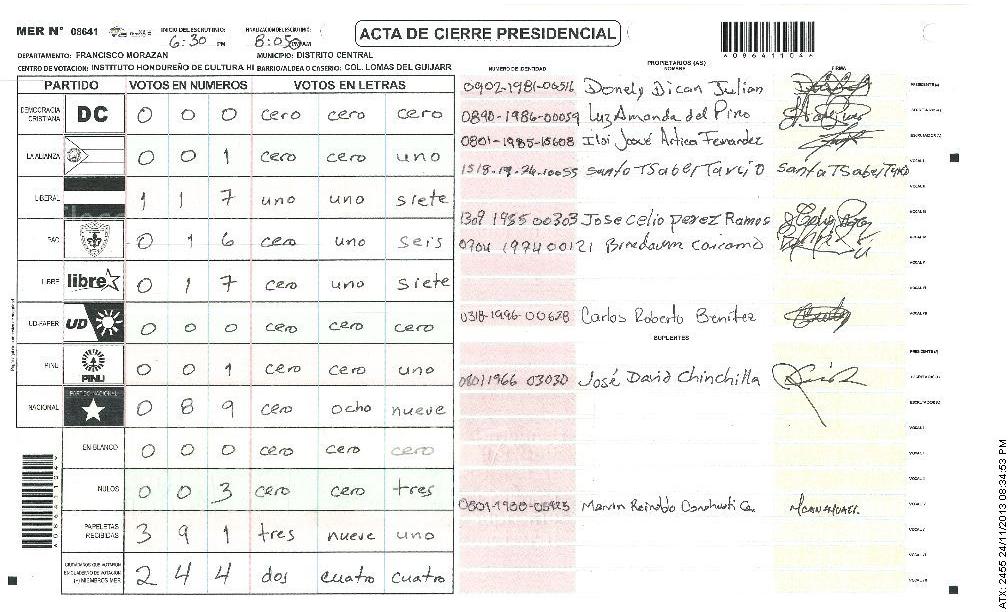 MER Nº 08641
INICIO DEL ESCRUTINIO: 6:30 PM
FINALIZACION ESCRUTINIO: 8:05 PM AM
ACTA DE CIERRE PRESIDENCIAL
DEPARTAMENTO: FRANCISCO MORAZAN MUNICIPIO: DISTRITO CENTRAL
CENTRO DE VOTACION: INSTITUTO HONDUREÑO DE CULTURA HI BARRIO/ALDEA O CASERIO: COL. LOMAS DEL GUIJARR
PARTIDO VOTOS EN NUMEROS VOTOS EN LETRAS
DEMOCRACIA CRISTIANA DC 0 0 0 cero cero cero
LA ALIANZA 0 0 1 cero cero uno
LIBERAL 1 1 7 uno uno siete
PAC 0 1 6 cero uno seis
LIBRE libre 0 1 7 cero uno siete
UD-FAPER UD 0 0 0 cero cero cero
PINU PINU 0 0 1 cero cero uno
NACIONAL PARTIDO NACIONAL 0 8 9 cero ocho nueve
EN BLANCO 0 0 0 cero cero cero
NULOS 0 0 3 cero cero tres
PAPELETAS RECIBIDAS 3 9 1 tres nueve uno
CIUDADANOS QUE VOTARON EN CUADERNO DE VOTACION (+) MIEMBROS MER 2 4 4 dos cuatro cuatro
NUMERO DE IDENTIDAD PROPIETARIOS (AS) NOMBRE FIRMA
Donely Dican Julian PRESIDENTE(A)
Luz Amanda del Pino
0801-1985-15608
santo TSabel Tarcio santa TSabel
1309 1985 00303 Jose Celio perez Ramos
0704 1974 00121
0318-1996-00628 Carlos Roberto Benitez
SUPLENTES
08011966 03030 José David Chinchilla
Marvin Reinaldo
ATX: 2455 24/11/2013 08:34:53 PM